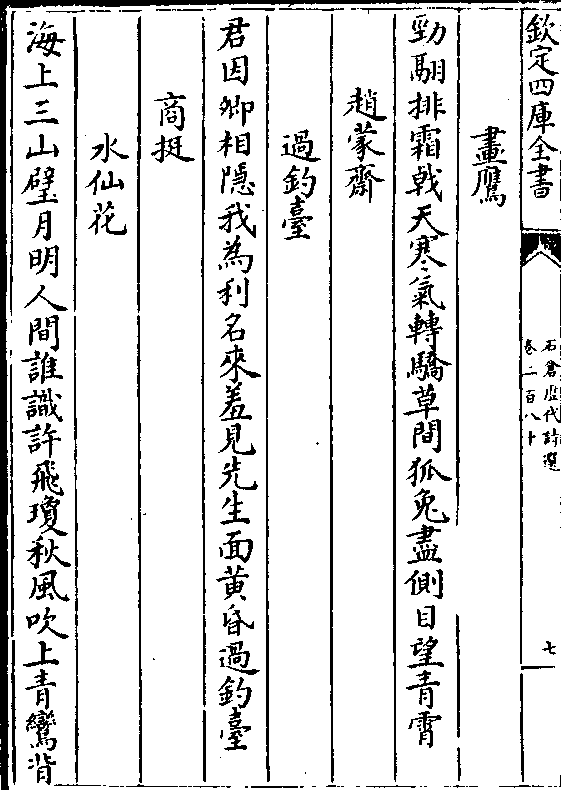 欽定四庫全書
石倉歷代詩選
卷二百八十
七
畫鷹
勁翮排霜戟天寒氣轉驕草間狐兔盡側目望青霄
趙蒙齋
過釣臺
君因卿相隱我為利名來羞見先生面黄昏過釣臺
商挺
水仙花
海上三山璧月明人間誰識許飛瓊秋風吹上青鸞背